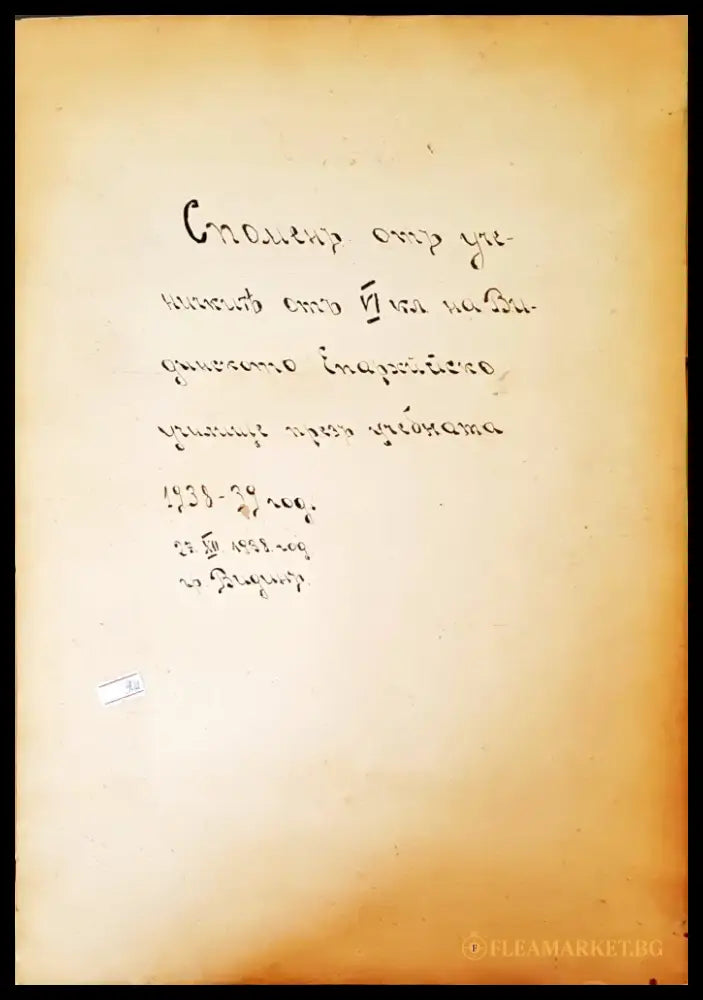 Споменъ отъ уче-
ницитѣ отъ VI кл. на Ви-
динското Епархийско
училище презъ учебната
1938-39 год.
27. XII. 1938. год
гр. Видинъ.
FLEAMARKET.BG